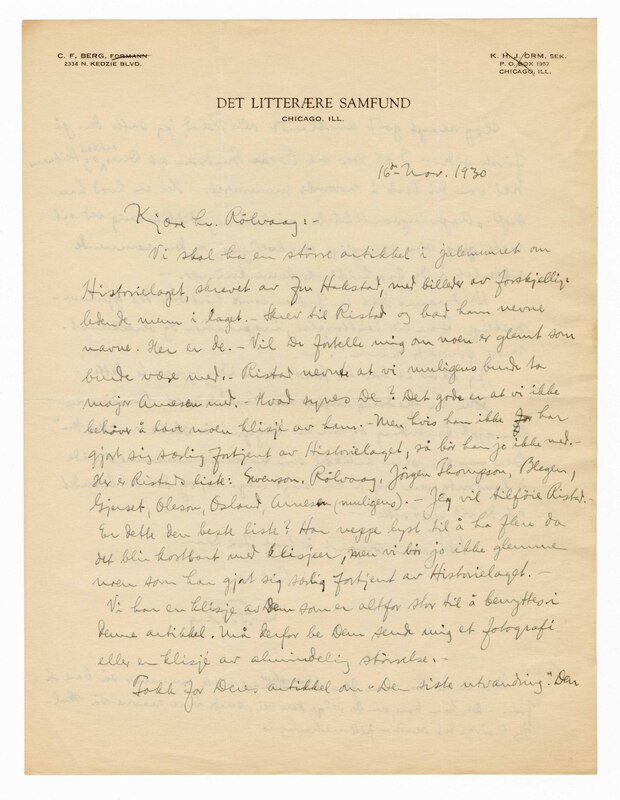 C. F. BERG, FORMANN
2334 N. KEDZIE BLVD.
K. H. J. ORM, SEK.
P. O. BOX 1957
CHICAGO, ILL.
DET LITTERÆRE SAMFUND
CHICAGO, ILL.
16de Nov. 1930
Kjære hr. Rölvaag:-
Vi skal ha en större artikkel i julenumret om
Historielaget, skrevet av Fru Hakstad, med billeder av forskjellige
ledende menn i laget. - Skrev til Ristad og bad ham nevne
navne. Her er de. - Vil De fortelle mig om noen er glemt som
burde være med. - Ristad nevnte at vi muligens burde ta
major Arnesen med. - Hvad synes De? Det gode er at vi ikke
behöver å lave noen klisjé av ham. - Men hvis han ikke har
gjort sig særlig fortjent av Historielaget, så bör han jo ikke med. -
Her er Ristads liste: Swenson, Rölvaag, Jörgen Thompson, Blegen,
Gjerset, Oleson, Osland, Arnesen (muligens). - Jeg vil tilföie Ristad. -
Er dette den beste liste? Har neppe lyst til å ha flere da
det blir kostbart med klisjeer, men vi bör jo ikke glemme
noen som har gjort sig særlig fortjent av Historielaget. -
Vi har en klisje av Dem som er altfor stor til å benyttes i
denne artikkel. Må derfor be Dem sende mig et fotografi
eller en klisjé av almindelig störrelse. -
Takk for Deres artikkel om "Den siste utvandring". Den